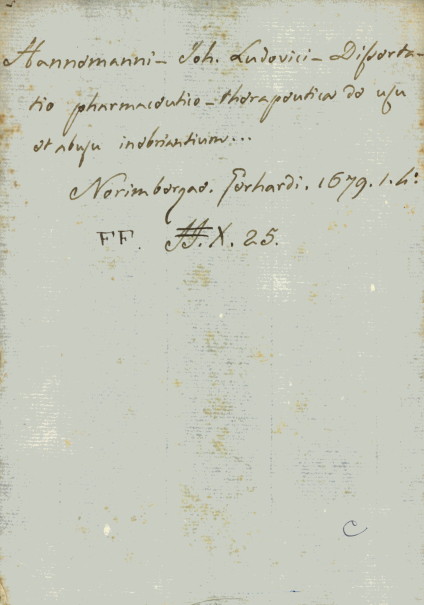 Hannemanni - Joh. Ludovici - Disserta-
tio pharmaceutico - therapeutica de usu
et abusu inebriantium...
Norimbergae. Gerhardi. 1679. 1. 4:
FF. JJ. X. 25.
C